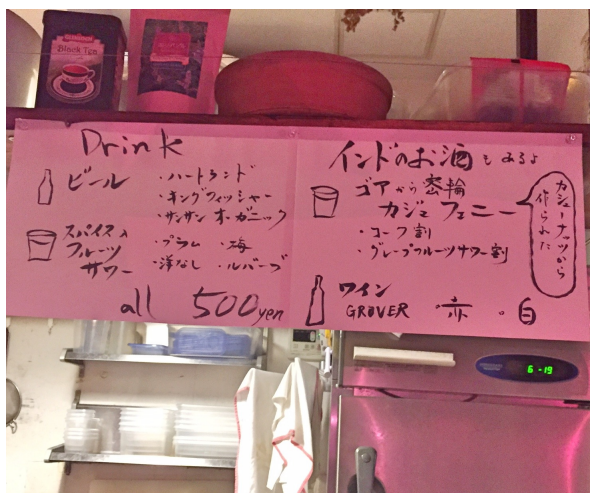 Black Tea
Drink
ビール
・ハートランド
・キングフィッシャー
・サンサンオーガニック
スパイス入
フルーツ
サワー
・プラム ・梅
・洋なし ・ルバーブ
all 500yen
インドのお酒もあるよ
ゴアから密輸
カジュフェニー
・コーク割
・グレープフルーツサワー割
カシューナッツから
作られた
ワイン
GROVER ・赤 ・白
6-19